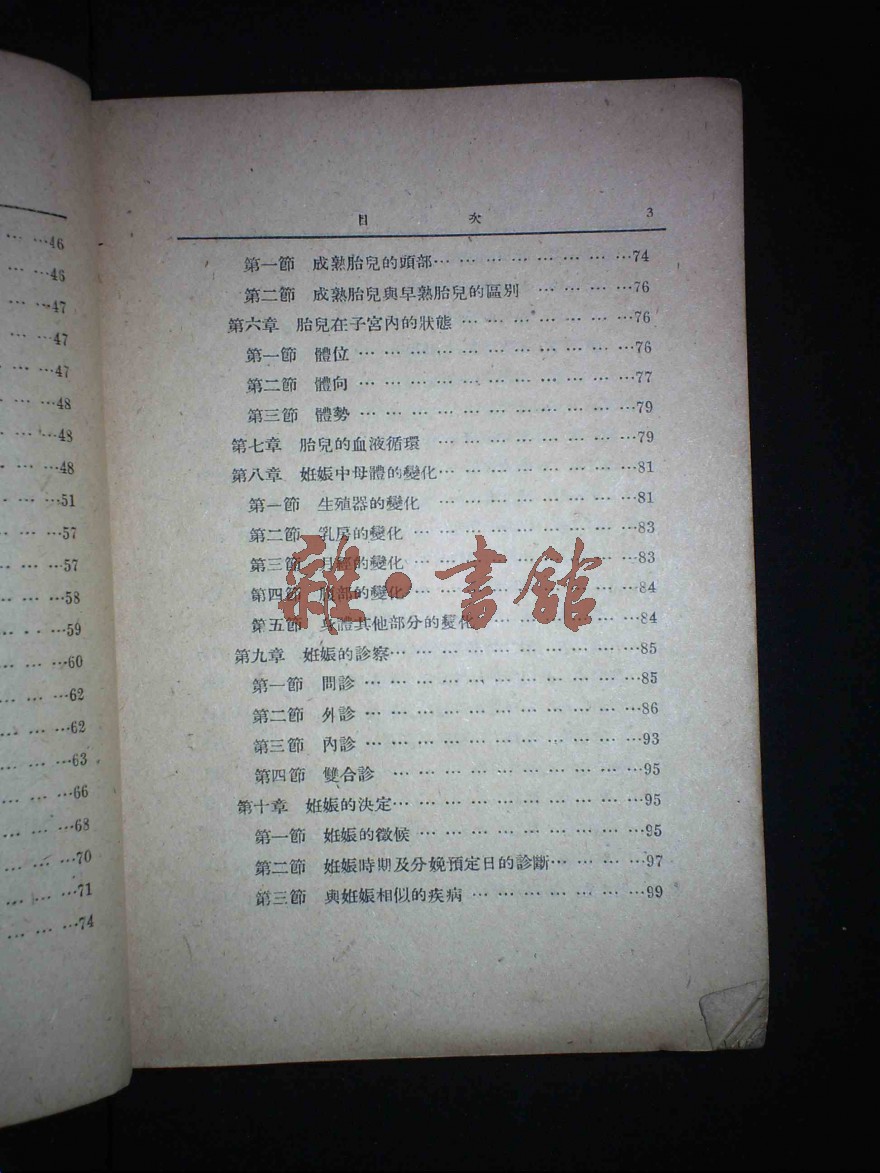 …46
…46
…47
…47
…47
…48
…48
…48
…51
…57
…57
…58
…59
…60
…62
…62
…63
…66
…68
…70
…71
…74
目 次 3
第一節 成熟胎兒的頭部… … … … … … … …74
第二節 成熟胎兒與早熟胎兒的區別 … … … …76
第六章 胎兒在子宮內的狀態 … … … … … … …76
第一節 體位 … … … … … … … … … … …76
第二節 體向 … … … … … … … … … … …77
第三節 體勢 … … … … … … … … … … …79
第七章 胎兒的血液循環 … … … … … … … …79
第八章 妊娠中母體的變化… … … … … … … …81
第一節 生殖器的變化 … … … … … … … …81
第二節 乳房的變化 … … … … … … … … …83
第三節 月經的變化 … … … … … … … … …83
第四節 腹部的變化 … … … … … … … … …84
第五節 身體其他部分的變化 … … … … … …84
第九章 妊娠的診察… … … … … … … … … …85
第一節 問診 … … … … … … … … … … …85
第二節 外診 … … … … … … … … … … …86
第三節 內診 … … … … … … … … … … …93
第四節 雙合診 … … … … … … … … … …95
第十章 妊娠的決定… … … … … … … … … …95
第一節 妊娠的徵候 … … … … … … … … …95
第二節 妊娠時期及分娩預定日的診斷… … … …97
第三節 與妊娠相似的疾病 … … … … … … …99
雜·書館